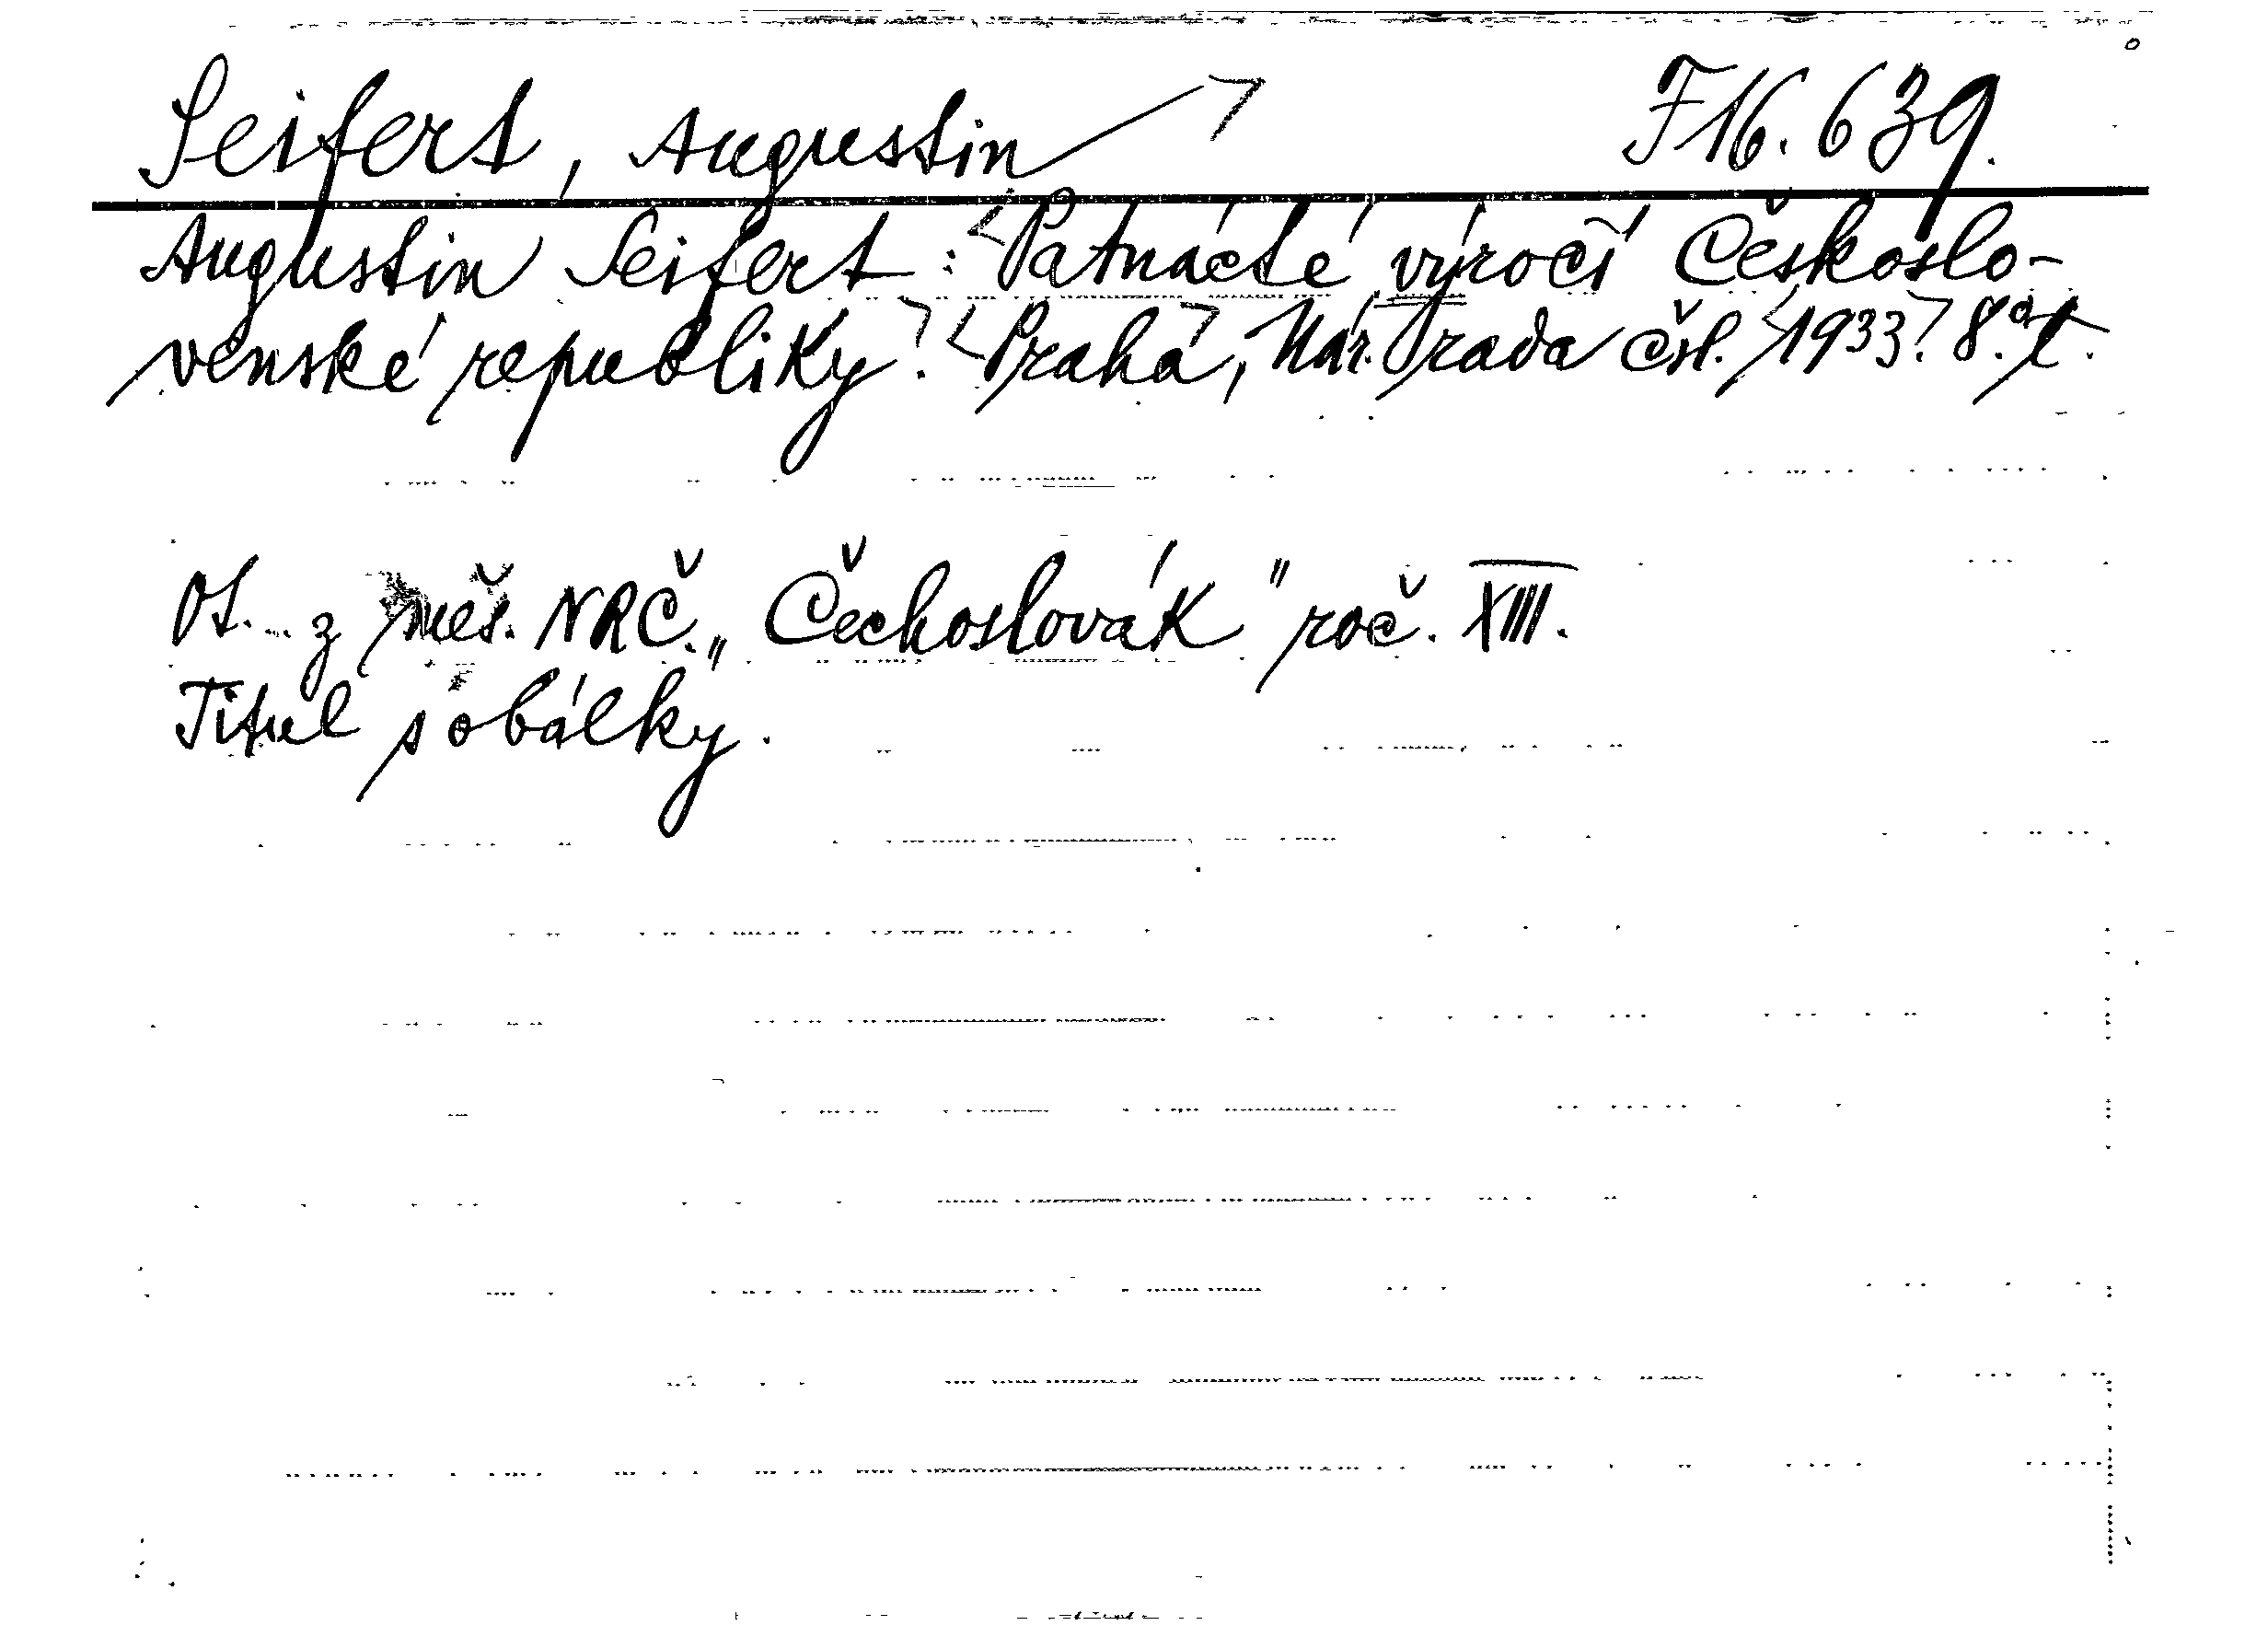 Seifert, Augustin F 16.639.
Augustin Seifert: Patnácté výročí Českoslo-
venské republiky. Praha, Nár. rada čsl. 1933. 8°. l.
Ot. z měs. NRČ. „Čechoslovák" roč. XIII.
Titul s obálky.